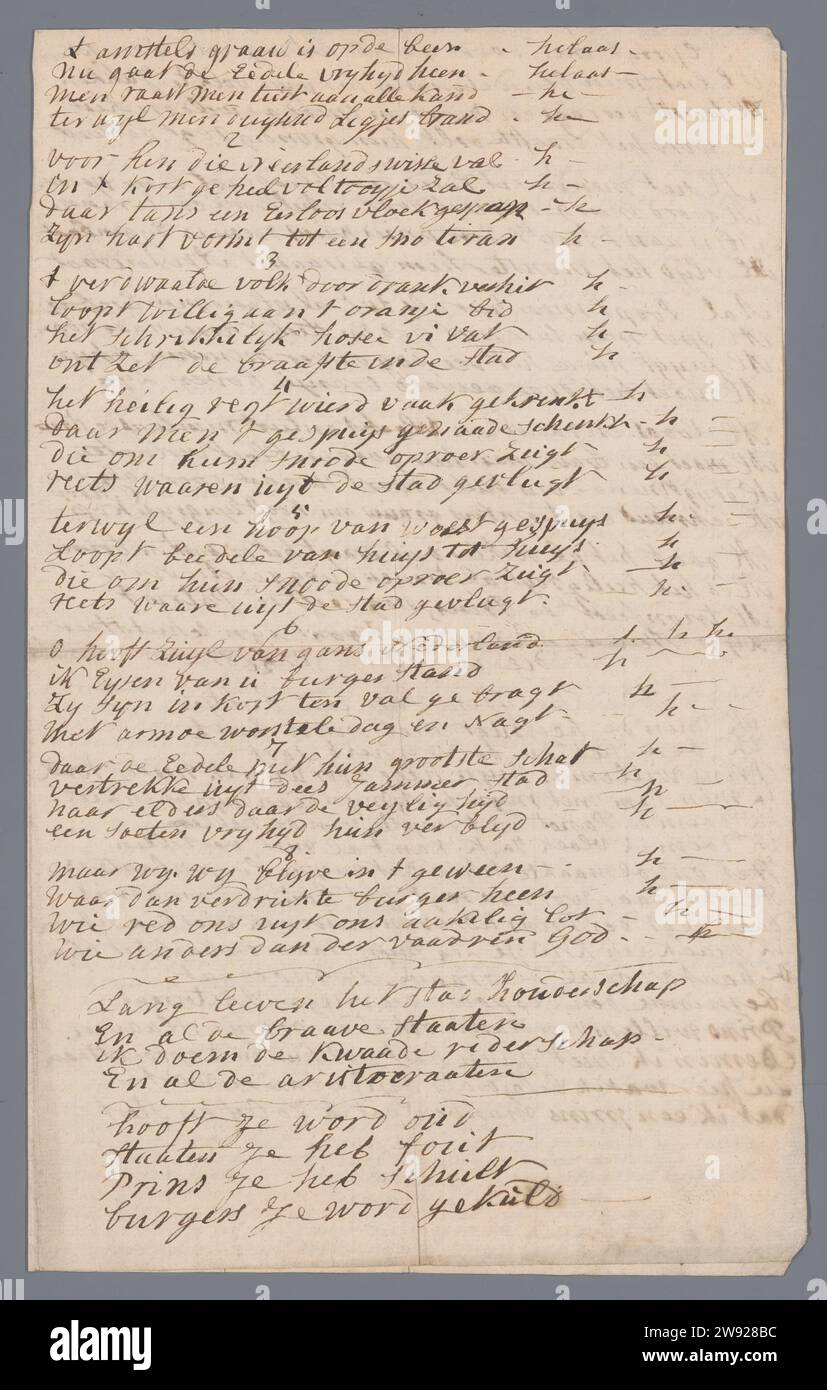 t amstels graau is op de been - helaas -
Nu gaat de Eedele vryhyd heen - helaas -
men raast men tiert aan alle kand - h -
terwyl men vreughd Legjes brand - h -
2
voor hen die Neerlands wisse val h -
in t kort geheel voltooyje zal h -
daar tans een Eerloos vloekgespan - h
Zyn hart vormt tot een sno tiran h -
3
t verdwaalde volk door drank verhit h -
loopt willig aan t oranje bid h
het schrikkelyk hosee vivat h -
ont Zet de braafste in de stad h
4
het heilig regt wierd vaak gekrenkt h
daar men t gespuys genaade schenkt - h -
die om hun snoode oproer Zugt h -
reets waaren uyt de stad gevlugt h
5
terwyl een hoop van woest gespuys h -
Loopt beedele van huys tot huys h
die om hun snoode oproer Zugt - h -
reets waare uyt de stad gevlugt. h -
6
o hooft Zuyl van gans Nederland h h
ik Eysen van u burger stand h
Zy syn in kort ten val gebragt h -
met armoe worstele dag en Nagt - h -
7
daar de Eedele met hun grootste schat h -
vertrekke uyt dees Jammer stad h
naar elders daar de veylighyd h -
een soeten vryhyd hun verblyd. h -
8
maar wy wy blyve in t geween - h -
waar dan verdrukte burger heen h -
wie red ons uyt ons aaklig lot - h -
wie anders dan der vaadren God - h -
Lang leeven het stad houderschap
En al de braave staaten
ik doem de kwaade riderschap -
En al de aristocraaten
hooft Ze word oud
staaten Ze heb fout
Prins Ze heb schult
burgers Ze word gekuld -
alamy
Image ID: 2W928BC
www.alamy.com